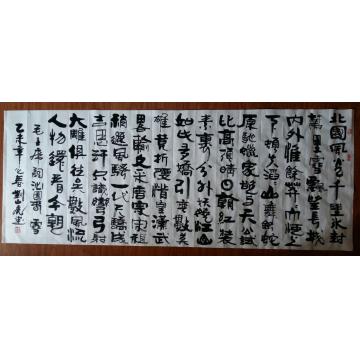 北國風光千里冰封
萬里雪飄望長城
内外惟餘莽莽大河上
下頓失滔滔山舞銀蛇
原馳蠟象欲與天公試
比高須晴日看紅裝
素裹分外妖嬈江山
如此多嬌引無數英
雄競折腰惜秦皇漢武
略輸文采唐宗宋祖
稍遜風騷一代天驕成
吉思汗只識彎弓射
大雕俱往矣數風流
人物還看今朝
毛主席詞沁園春雪
乙未年